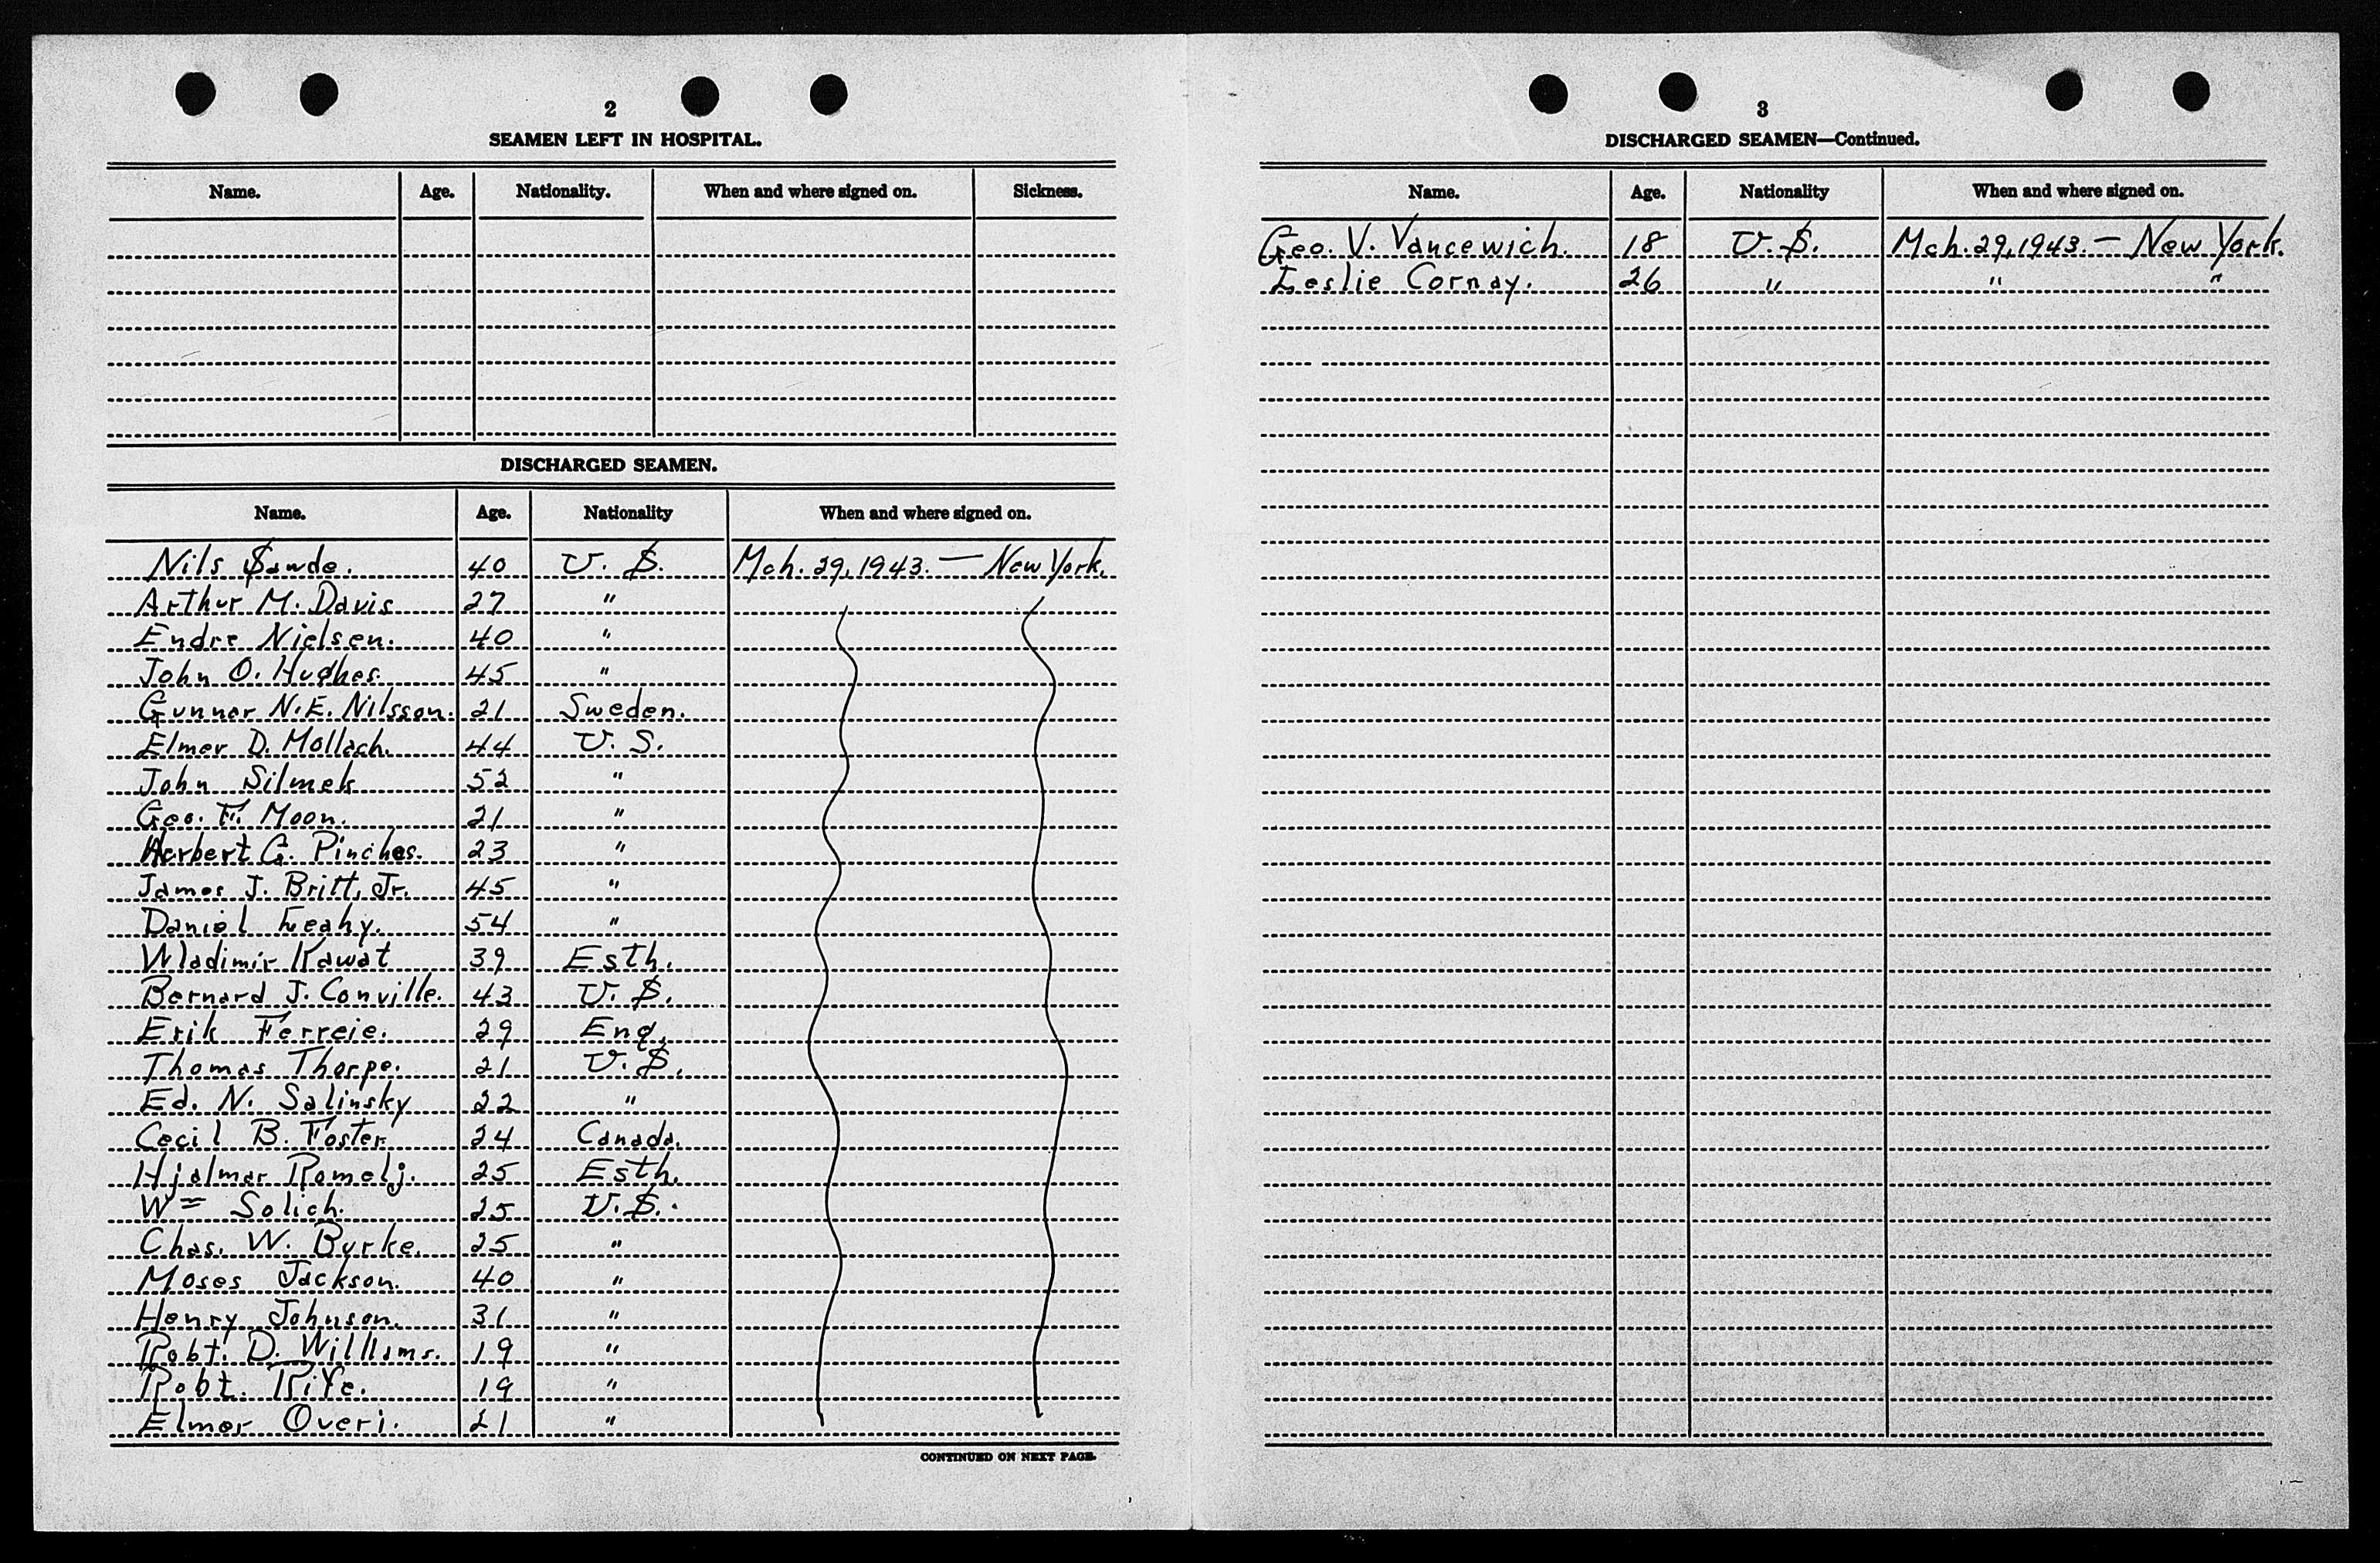 2
SEAMEN LEFT IN HOSPITAL.
Name. Age. Nationality. When and where signed on. Sickness.
DISCHARGED SEAMEN.
Name. Age. Nationality When and where signed on.
Nils Sawde. 40 U. S. Mch. 29, 1943. — New York.
Arthur M. Davis 27 "
Endre Nielsen. 40 "
John O. Hughes. 45 "
Gunnar N.E. Nilsson. 21 Sweden.
Elmer D. Mollach. 44 U. S.
John Silmek 52 "
Geo. F. Moon. 21 "
Herbert G. Pinches. 23 "
James J. Britt, Jr. 45 "
Daniel Leahy. 54 "
Wladimir Kawat 39 Esth.
Bernard J. Conville. 43 U. S.
Erik Ferreie. 29 Eng.
Thomas Thorpe. 21 U. S.
Ed. N. Salinsky 22 "
Cecil B. Foster. 24 Canada.
Hjalmar Romelj. 25 Esth.
Wm Solich. 25 U. S.
Chas. W. Burke. 25 "
Moses Jackson. 40 "
Henry Johnson. 31 "
Robt. D. Williams. 19 "
Robt. 19 "
Elmer Overi. 21 "
CONTINUED ON NEXT PAGE.
3
DISCHARGED SEAMEN—Continued.
Name. Age. Nationality When and where signed on.
Geo. V. Vancewich. 18 U. S. Mch. 29, 1943. — New York.
Leslie Cornay. 26 " " "